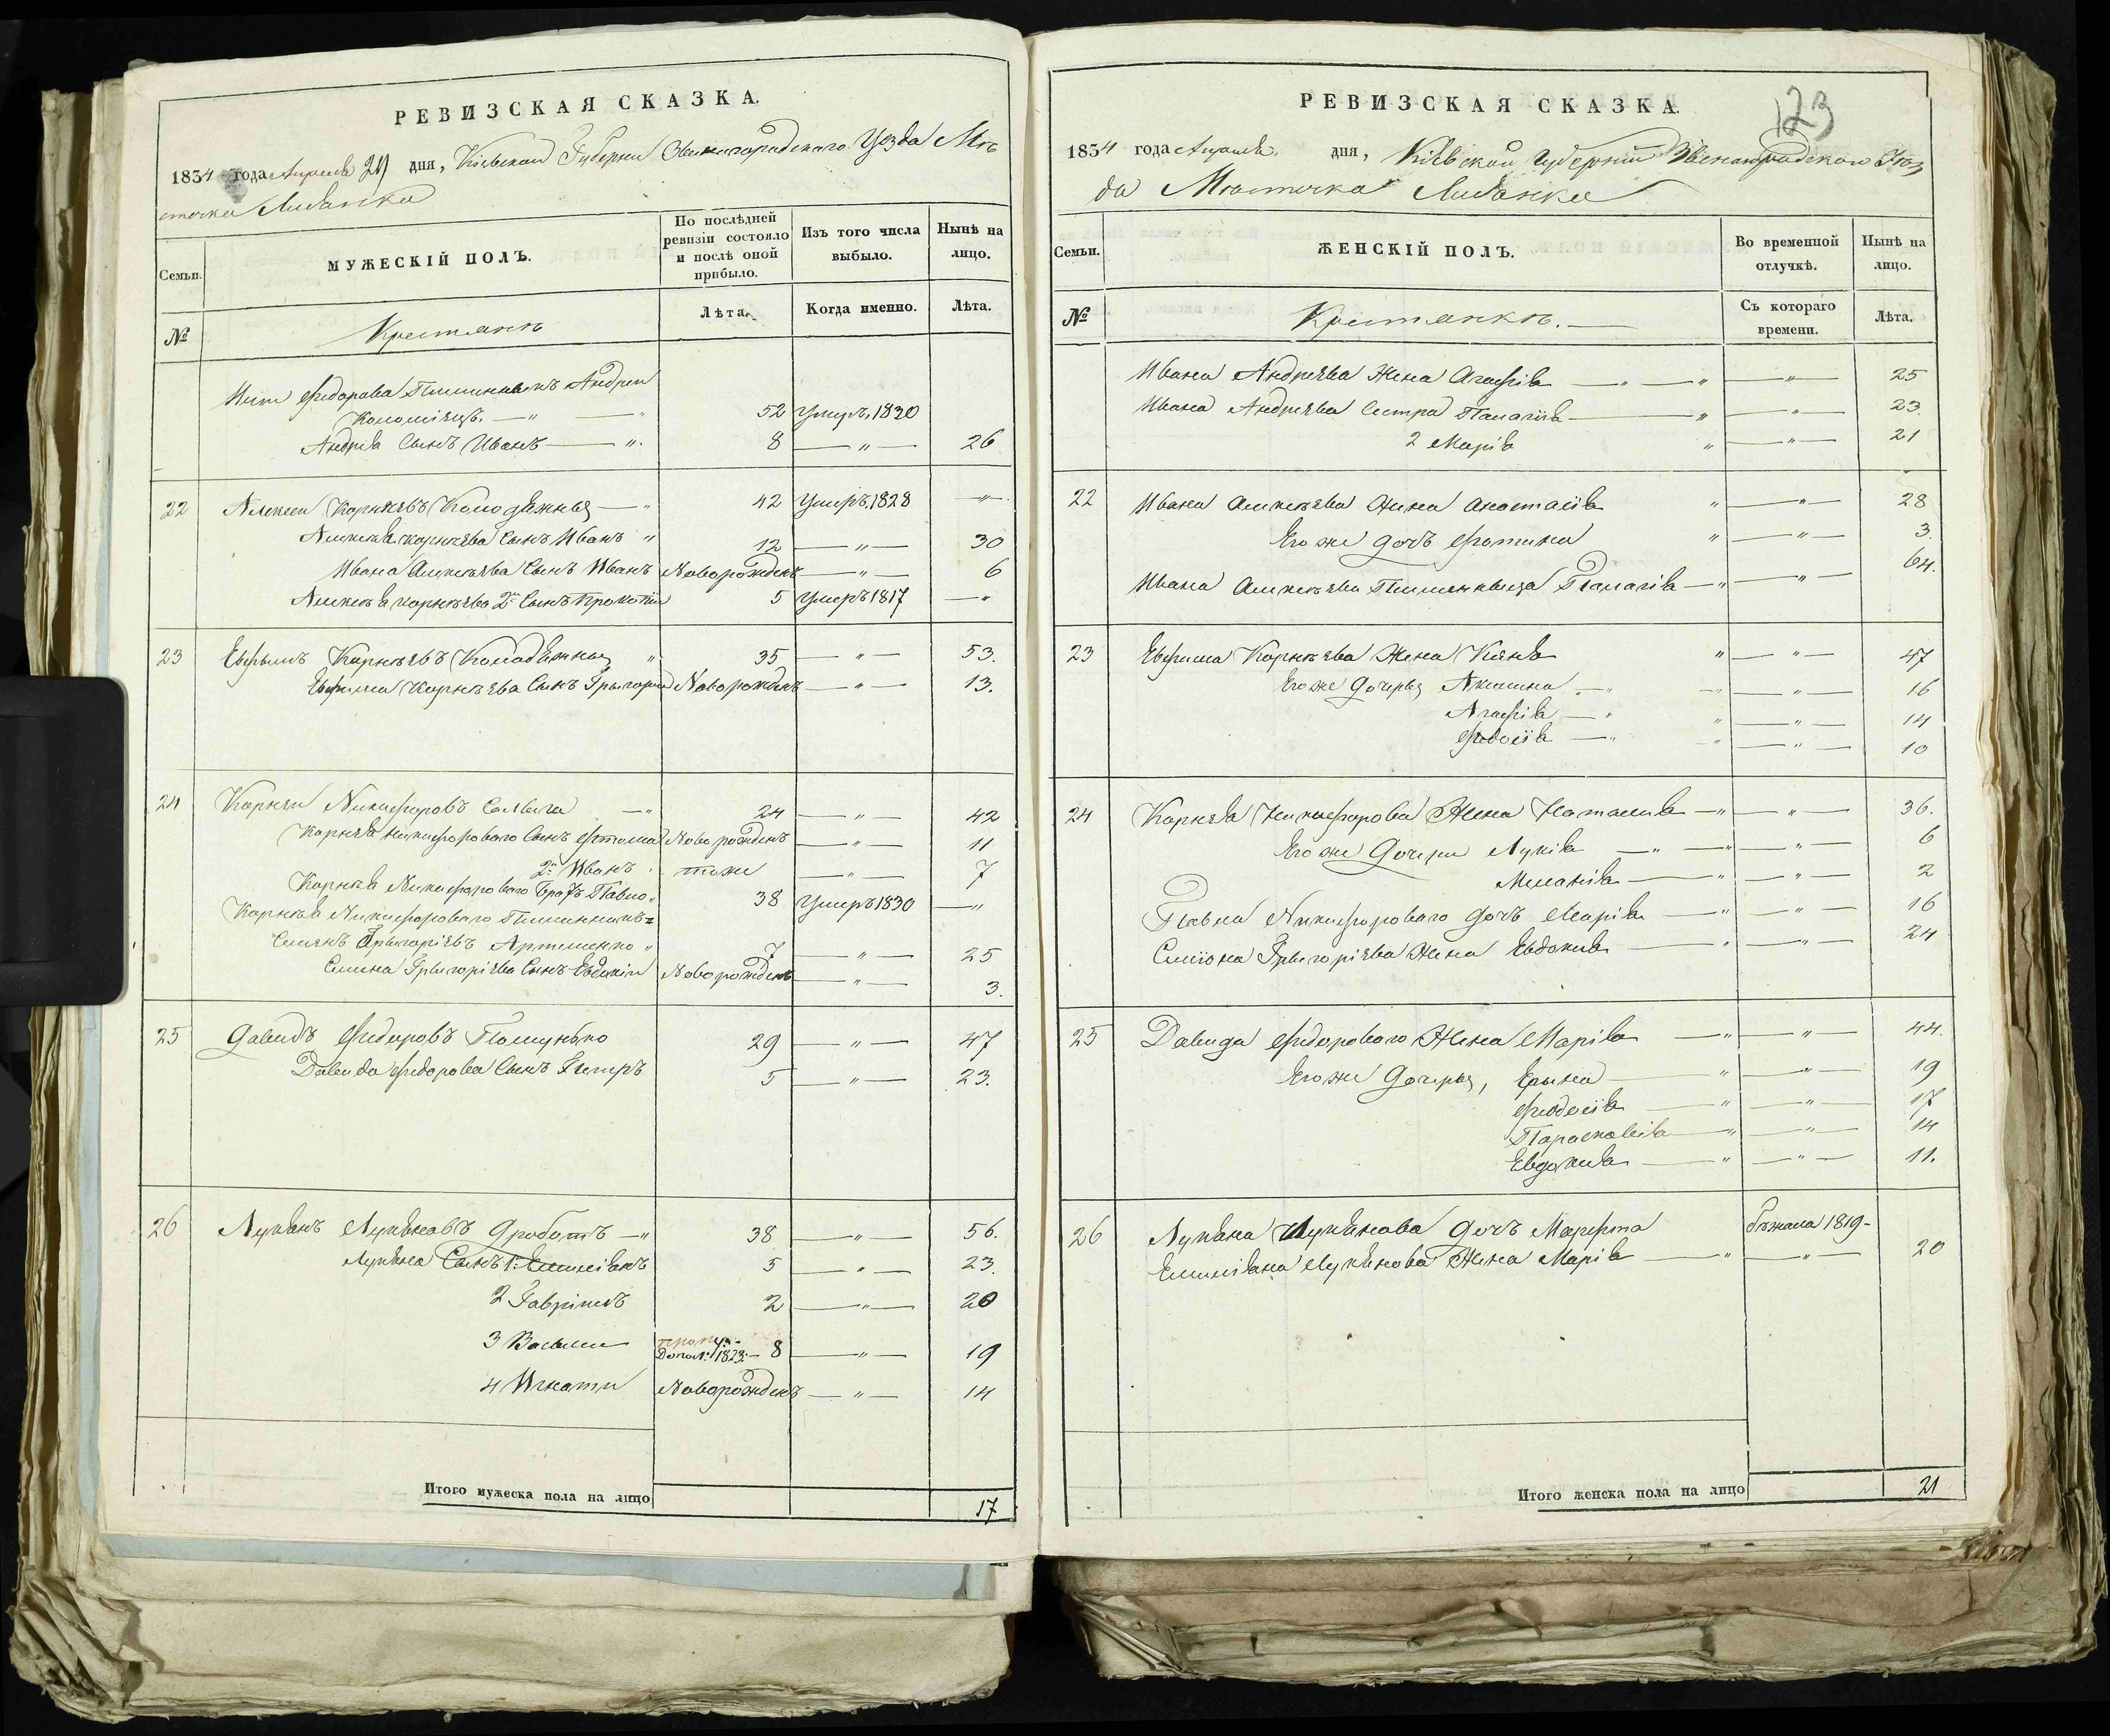 РЕВИЗСКАЯ СКАЗКА.
1834 года Апреля 29 дня, Кіевской Губерніи Звенигородскаго Уезда Мѣ
стечка Лисянка
Семьи.
МУЖЕСКІЙ ПОЛЪ.
По послѣдней ревизіи состояло и послѣ оной прибыло.
Изъ того числа выбыло.
Нынѣ на лицо.
№
Крестьянъ
Лѣта.
Когда именно.
Лѣта.
Федорова Племинникъ Андрей
Коломіецъ. 52 Умеръ, 1830
Андрея Сынъ Иванъ 8 26
22 Алексей Корнѣевъ Колодяжный 42 Умеръ 1828
Алексѣя Корнѣева Сынъ Иванъ 12 30
Ивана Алексѣева Сынъ Иванъ Новорожденъ 6
Алексѣя Корнѣева 2й Сынъ Прокопій 5 Умеръ 1817
23 Ефимъ Корнѣевъ Колодяжный 35 53.
Ефима Корнѣева Сынъ Грыгорій Новорожденъ 13.
24 Корнѣй Никифоровъ 24 42
Корнѣя Никифорового Сынъ Новорожденъ 11
2й Иванъ тоже 7
Корнѣя Никифорового Братъ Павло 38 Умеръ 1830
Корнѣя Никифорового Племинникъ=
Семенъ Грыгоріевъ Артеменко 7 25
Семена Грыгоріева Сынъ Евдокій Новорожденъ 3.
25 Давидъ Федоровъ 29 47
Давида Федорова Сынъ Петръ 5 23.
26 Лукянъ Лукяновъ Дроботъ 38 56.
Лукяна Сынъ 1: Емилиянъ 5 23.
2 Гавріилъ 2 20
3 Василий Допол: 1823: 8 19
4 Игнатий Новорожденъ 14
Итого мужеска пола на лицо 17
123
РЕВИЗСКАЯ СКАЗКА.
1834 года Апреля дня, Кіевской Губерніи Звенигородского Уез
да Мѣстечка Лисянки
Семьи.
ЖЕНСКІЙ ПОЛЪ.
Во временной отлучкѣ.
Нынѣ на лицо.
№
Крестянкъ.
Съ котораго времени.
Лѣта.
Ивана Андреѣва Жена Агафія 25
Ивана Андреѣва Сестра Палагія 23.
2 Марія 21
22 Ивана Алексѣева Жена Анастасія 28
Его же дочъ Фотина 3.
Ивана Алексѣева Племянныца Палагія 64.
23 Ефима Корнѣева Жена 47
Его же дочеры Акилина 16
Агафія 14
Феодосія 10
24 Корнѣя Никифорова Жена Наталия 36.
Его же Дочери Лукія 6
Меланія 2
Павла Никифорового дочъ Марія 16
Семіона Грыгоріева Жена Евдокия 24
25 Давида Федорового Жена Марія 44.
Его же дочеры, Ерына 19
Феодосія 17
Парасковія 14
Евдокия 11.
26 Лукяна Лукянова дочъ Марфта бѣжала 1819-
Емилияна Лукянова Жена Марія 20
Итого женска пола на лицо 21